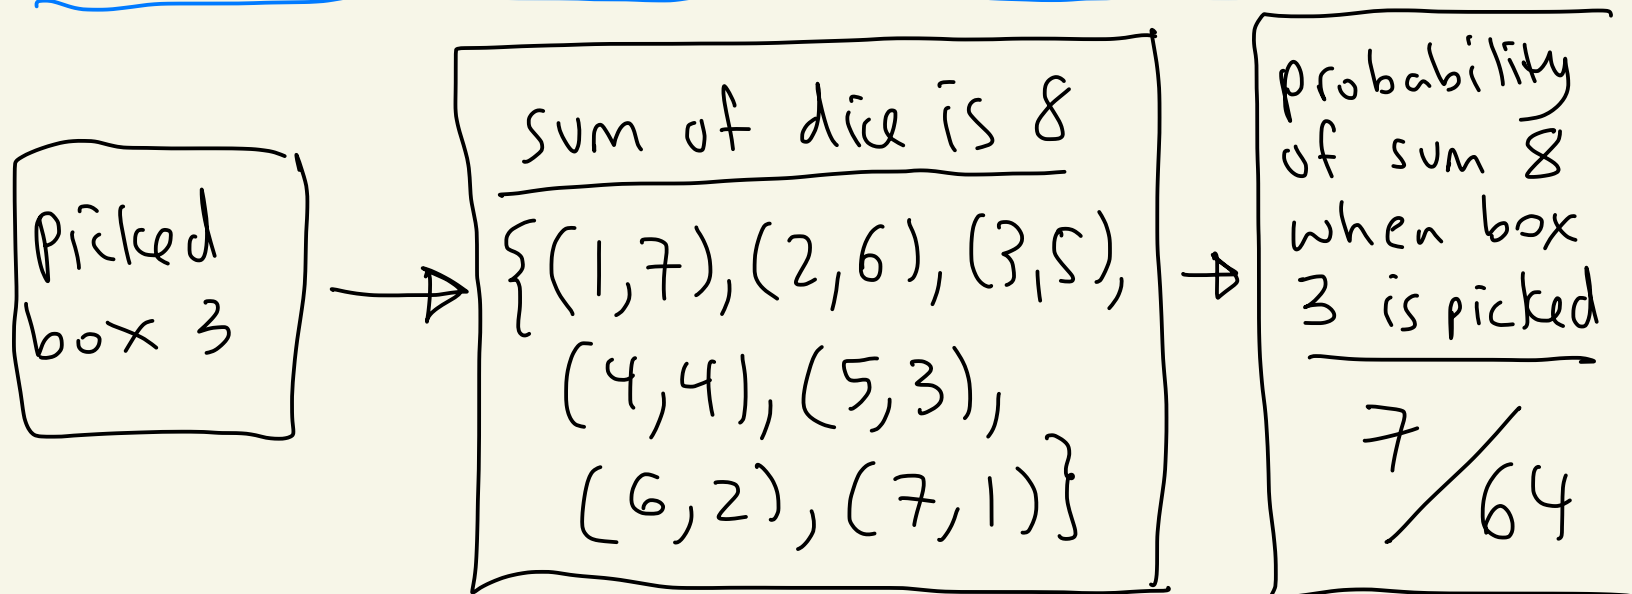 picked
box 3
sum of dice is 8
{(1,7), (2,6), (3,5),
(4,4), (5,3),
(6,2), (7,1)}
probability
of sum 8
when box
3 is picked
7/64